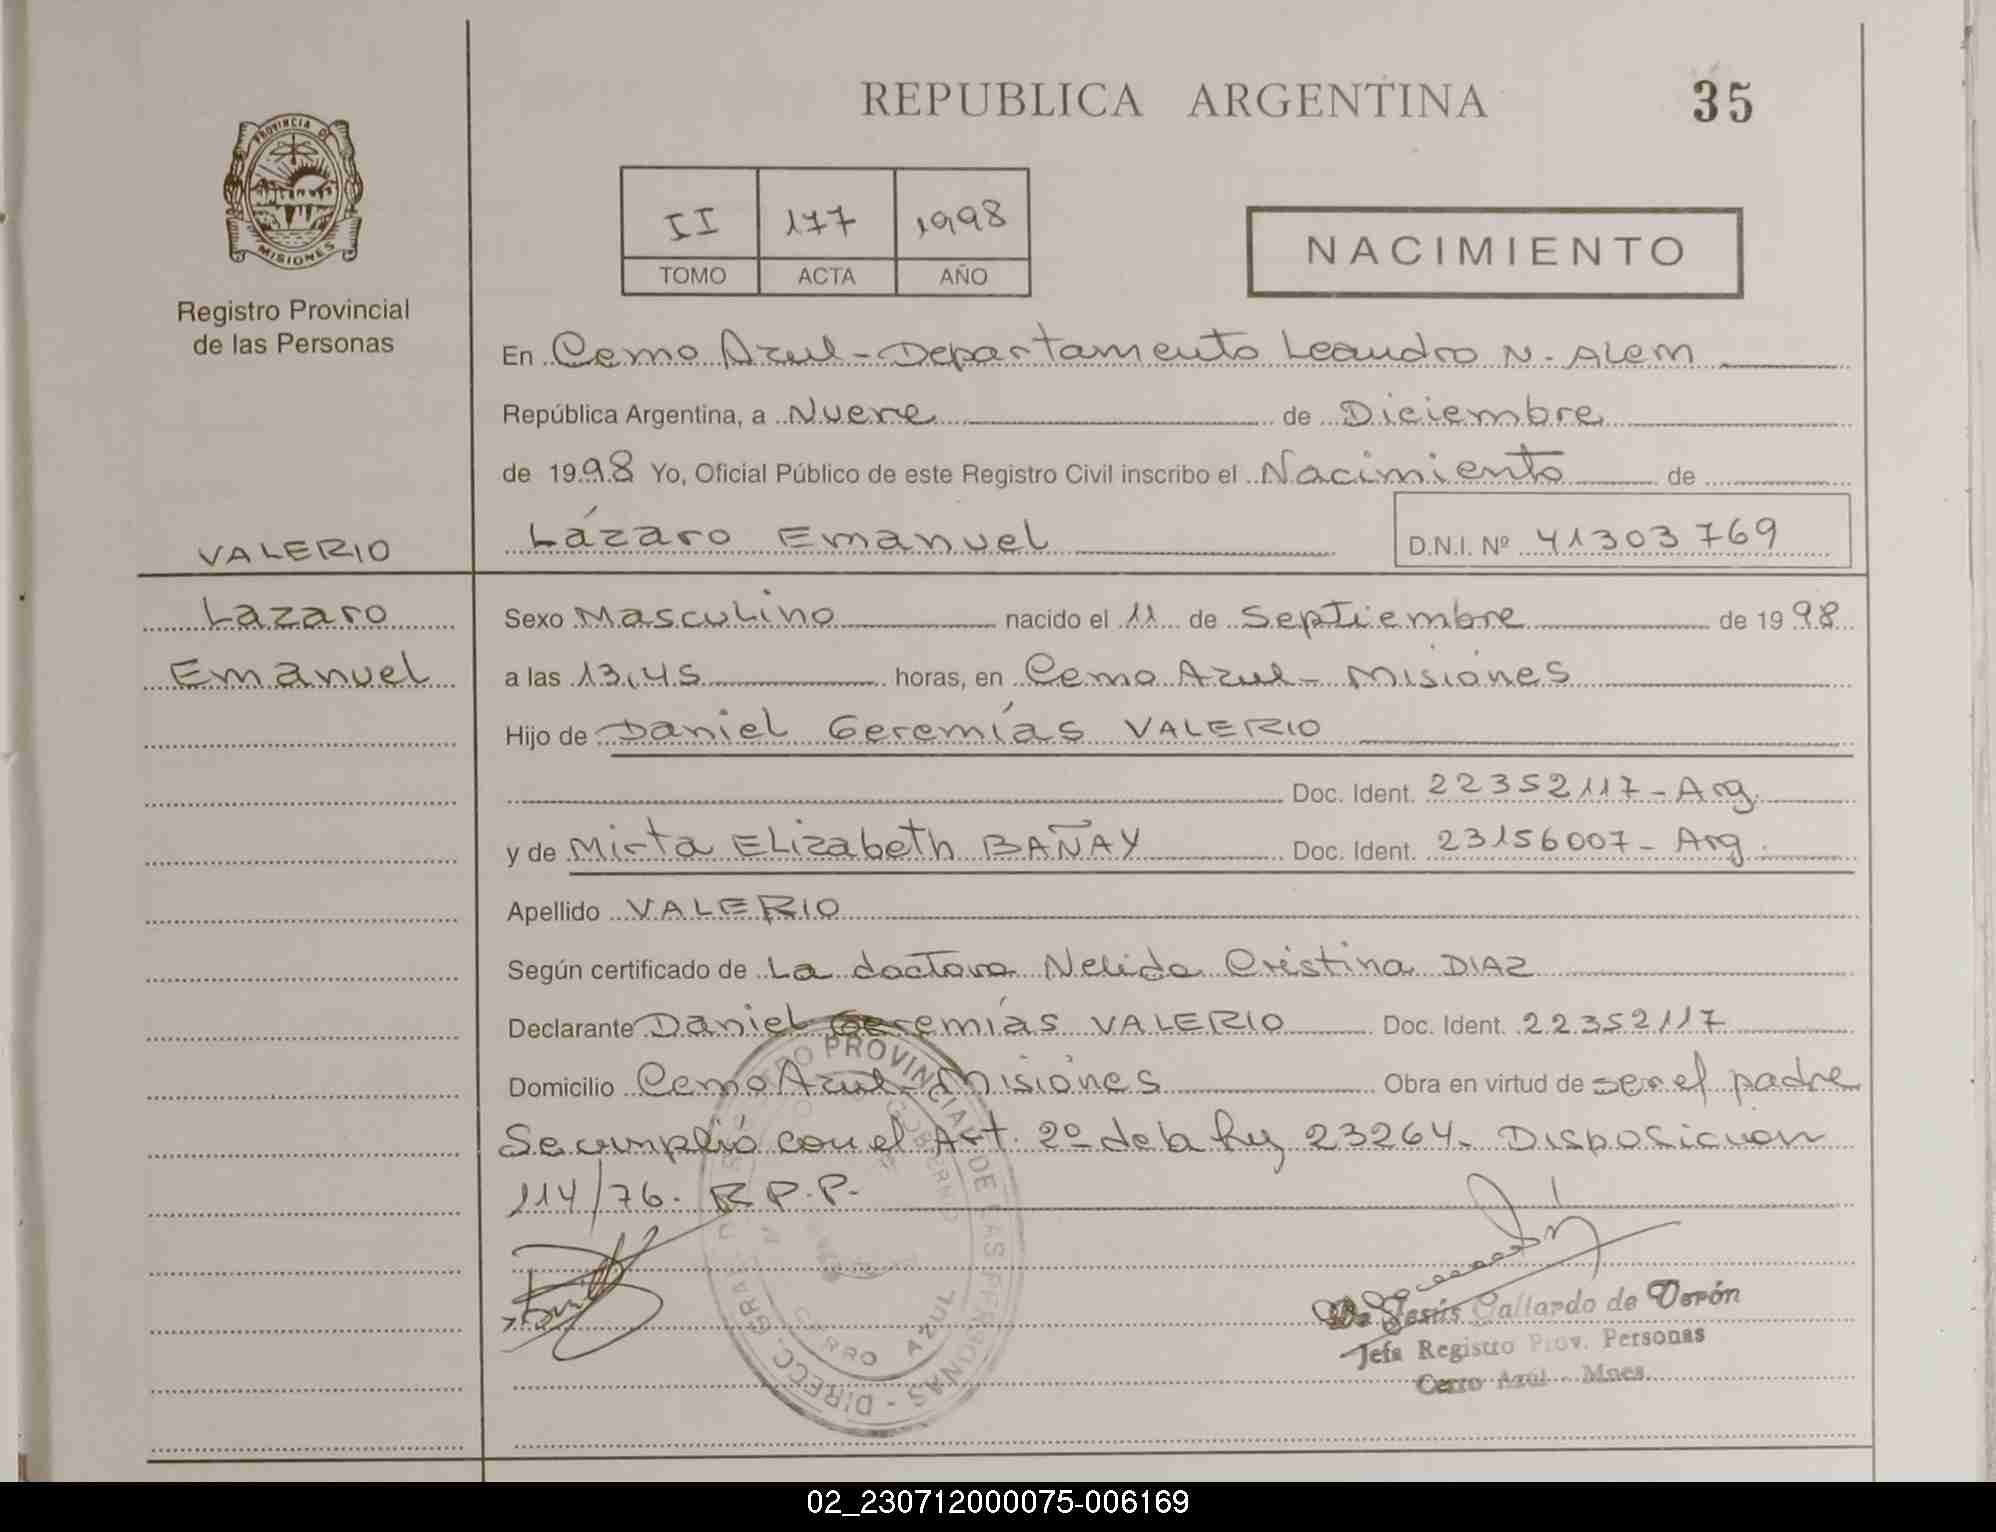 REPUBLICA ARGENTINA
35
PROVINCIA DE
MISIONES
Registro Provincial
de las Personas
II 177 1998
TOMO ACTA AÑO
NACIMIENTO
En Cerro Azul - Departamento Leandro N. Alem
República Argentina, a Nueve de Diciembre
de 1998 Yo, Oficial Público de este Registro Civil inscribo el Nacimiento de
VALERIO
Lázaro Emanuel
D.N.I. Nº 41303769
Lazaro
Emanuel
Sexo Masculino nacido el 11 de Septiembre de 1998
a las 13,45 horas, en Cerro Azul - Misiones
Hijo de Daniel Geremías VALERIO
Doc. Ident. 22352117 - Arg.
y de Mirta Elizabeth BAÑAY Doc. Ident. 23156007 - Arg.
Apellido VALERIO
Según certificado de La doctora Nelida Cristina DIAZ
Declarante Daniel Geremías VALERIO Doc. Ident. 22352117
Domicilio Cerro Azul - Misiones Obra en virtud de ser el padre
Se cumplió con el Art. 2º de la ley 23264. Disposicion
114/76. R.P.P.
PROVINCIAL DE LAS PERSONAS - DIRECC. GRAL.
CERRO AZUL
Jesús Gallardo de Verón
Jefa Registro Prov. Personas
Cerro Azúl - Mnes.
02_230712000075-006169